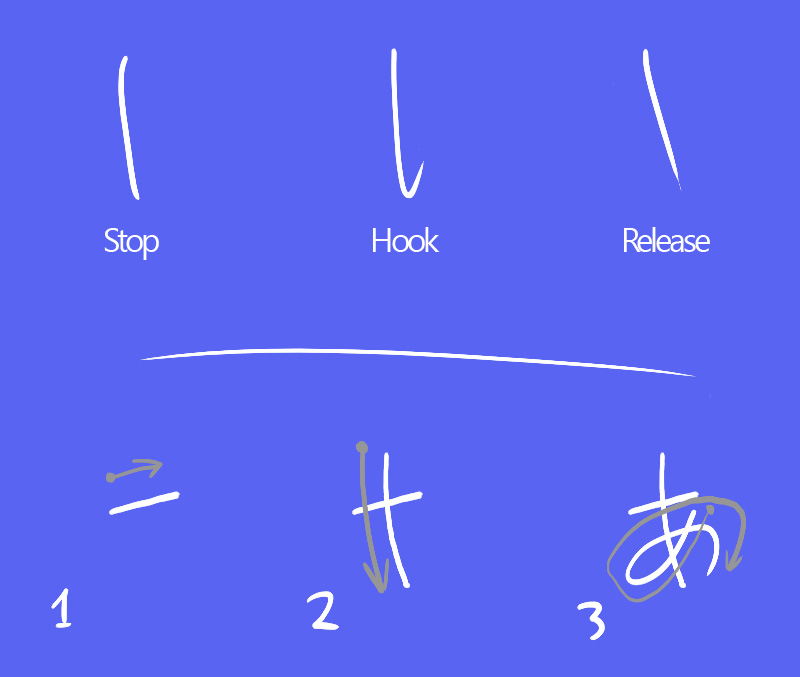 Stop Hook Release
あ
1 2 3